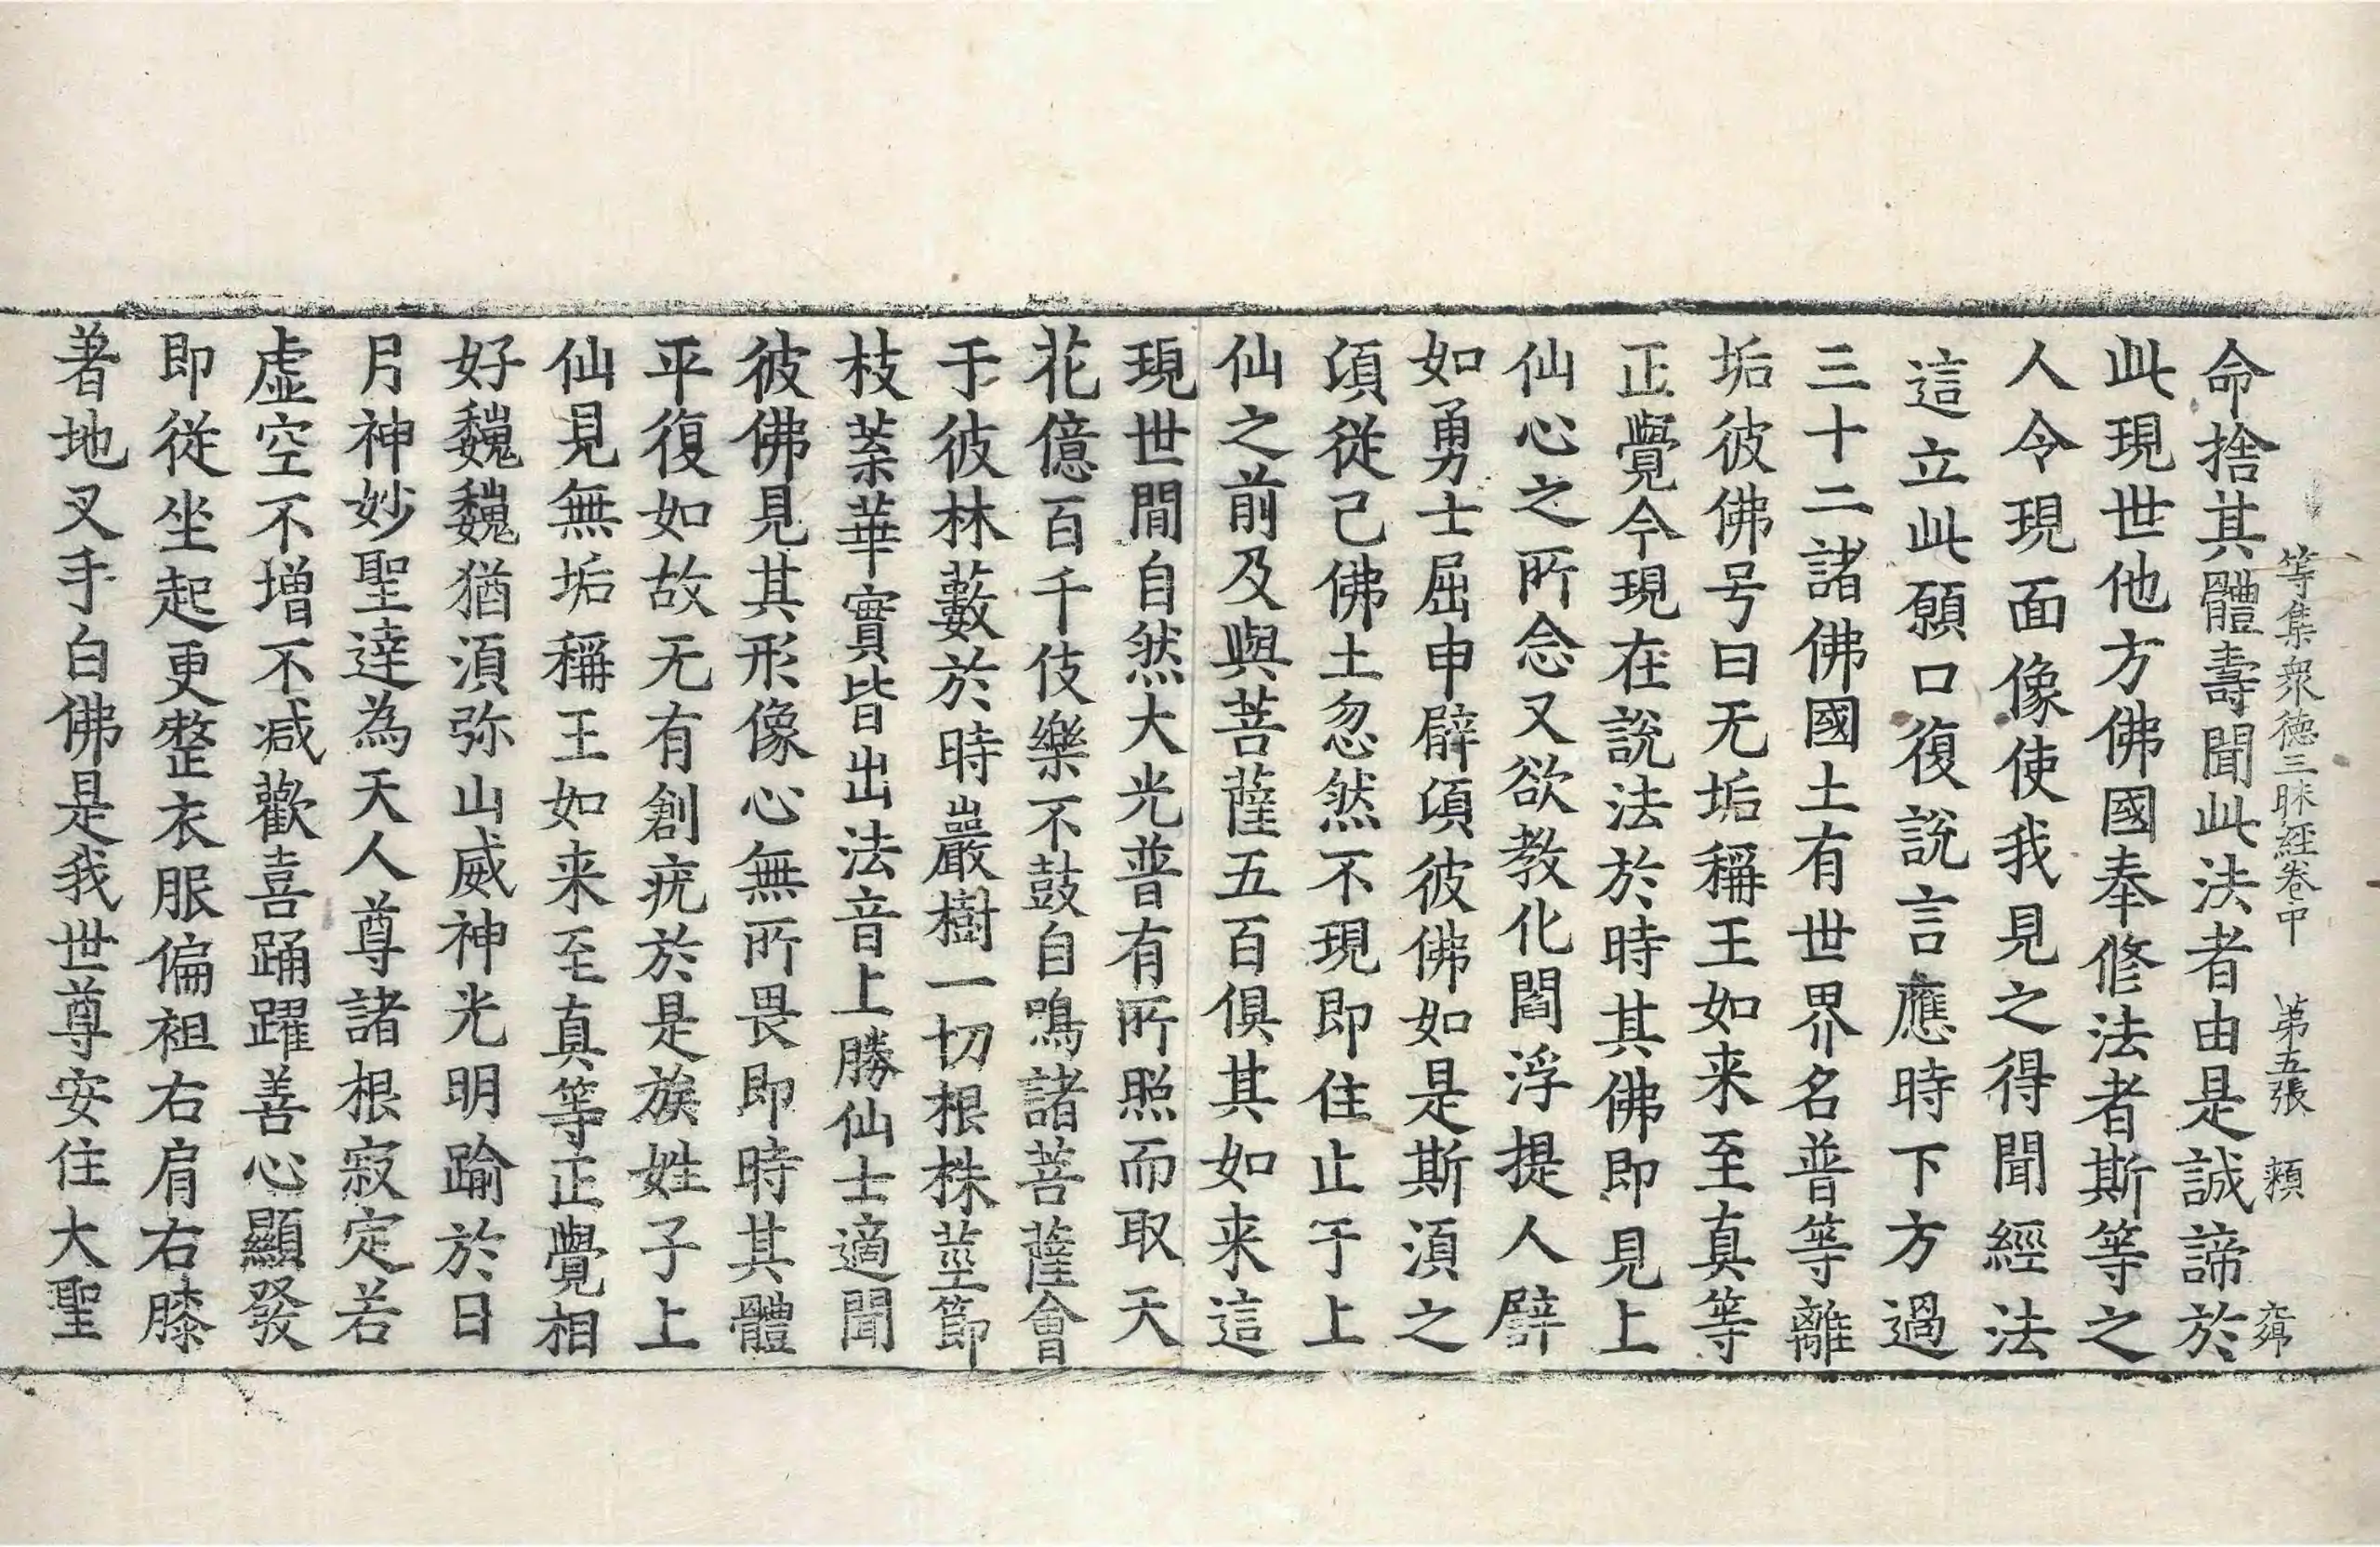 等集衆德三昧經卷中 第五張 頪
命捨其體壽聞此法者由是誠諦於
此現世他方佛國奉修法者斯等之
人令現面像使我見之得聞經法
這立此願口復說言應時下方過
三十二諸佛國土有世界名普等離
垢彼佛号曰无垢稱王如来至真等
正覺今現在說法於時其佛即見上
仙心之所念又欲教化閻浮提人譬
如勇士屈申臂頃彼佛如是斯須之
頃從己佛土忽然不現即住止于上
仙之前及與菩薩五百俱其如来這
現世間自然大光普有所照而取天
花億百千伎樂不鼓自鳴諸菩薩會
于彼林藪於時巖樹一切根株莖節
枝葉華實皆出法音上勝仙士適聞
彼佛見其形像心無所畏即時其體
平復如故无有創疣於是族姓子上
仙見無垢稱王如来至真等正覺相
好巍巍猶須弥山威神光明踰於日
月神妙聖達為天人尊諸根寂定若
虛空不增不減歡喜踊躍善心顯發
即從坐起更整衣服偏袒右肩右膝
著地叉手白佛是我世尊安住大聖